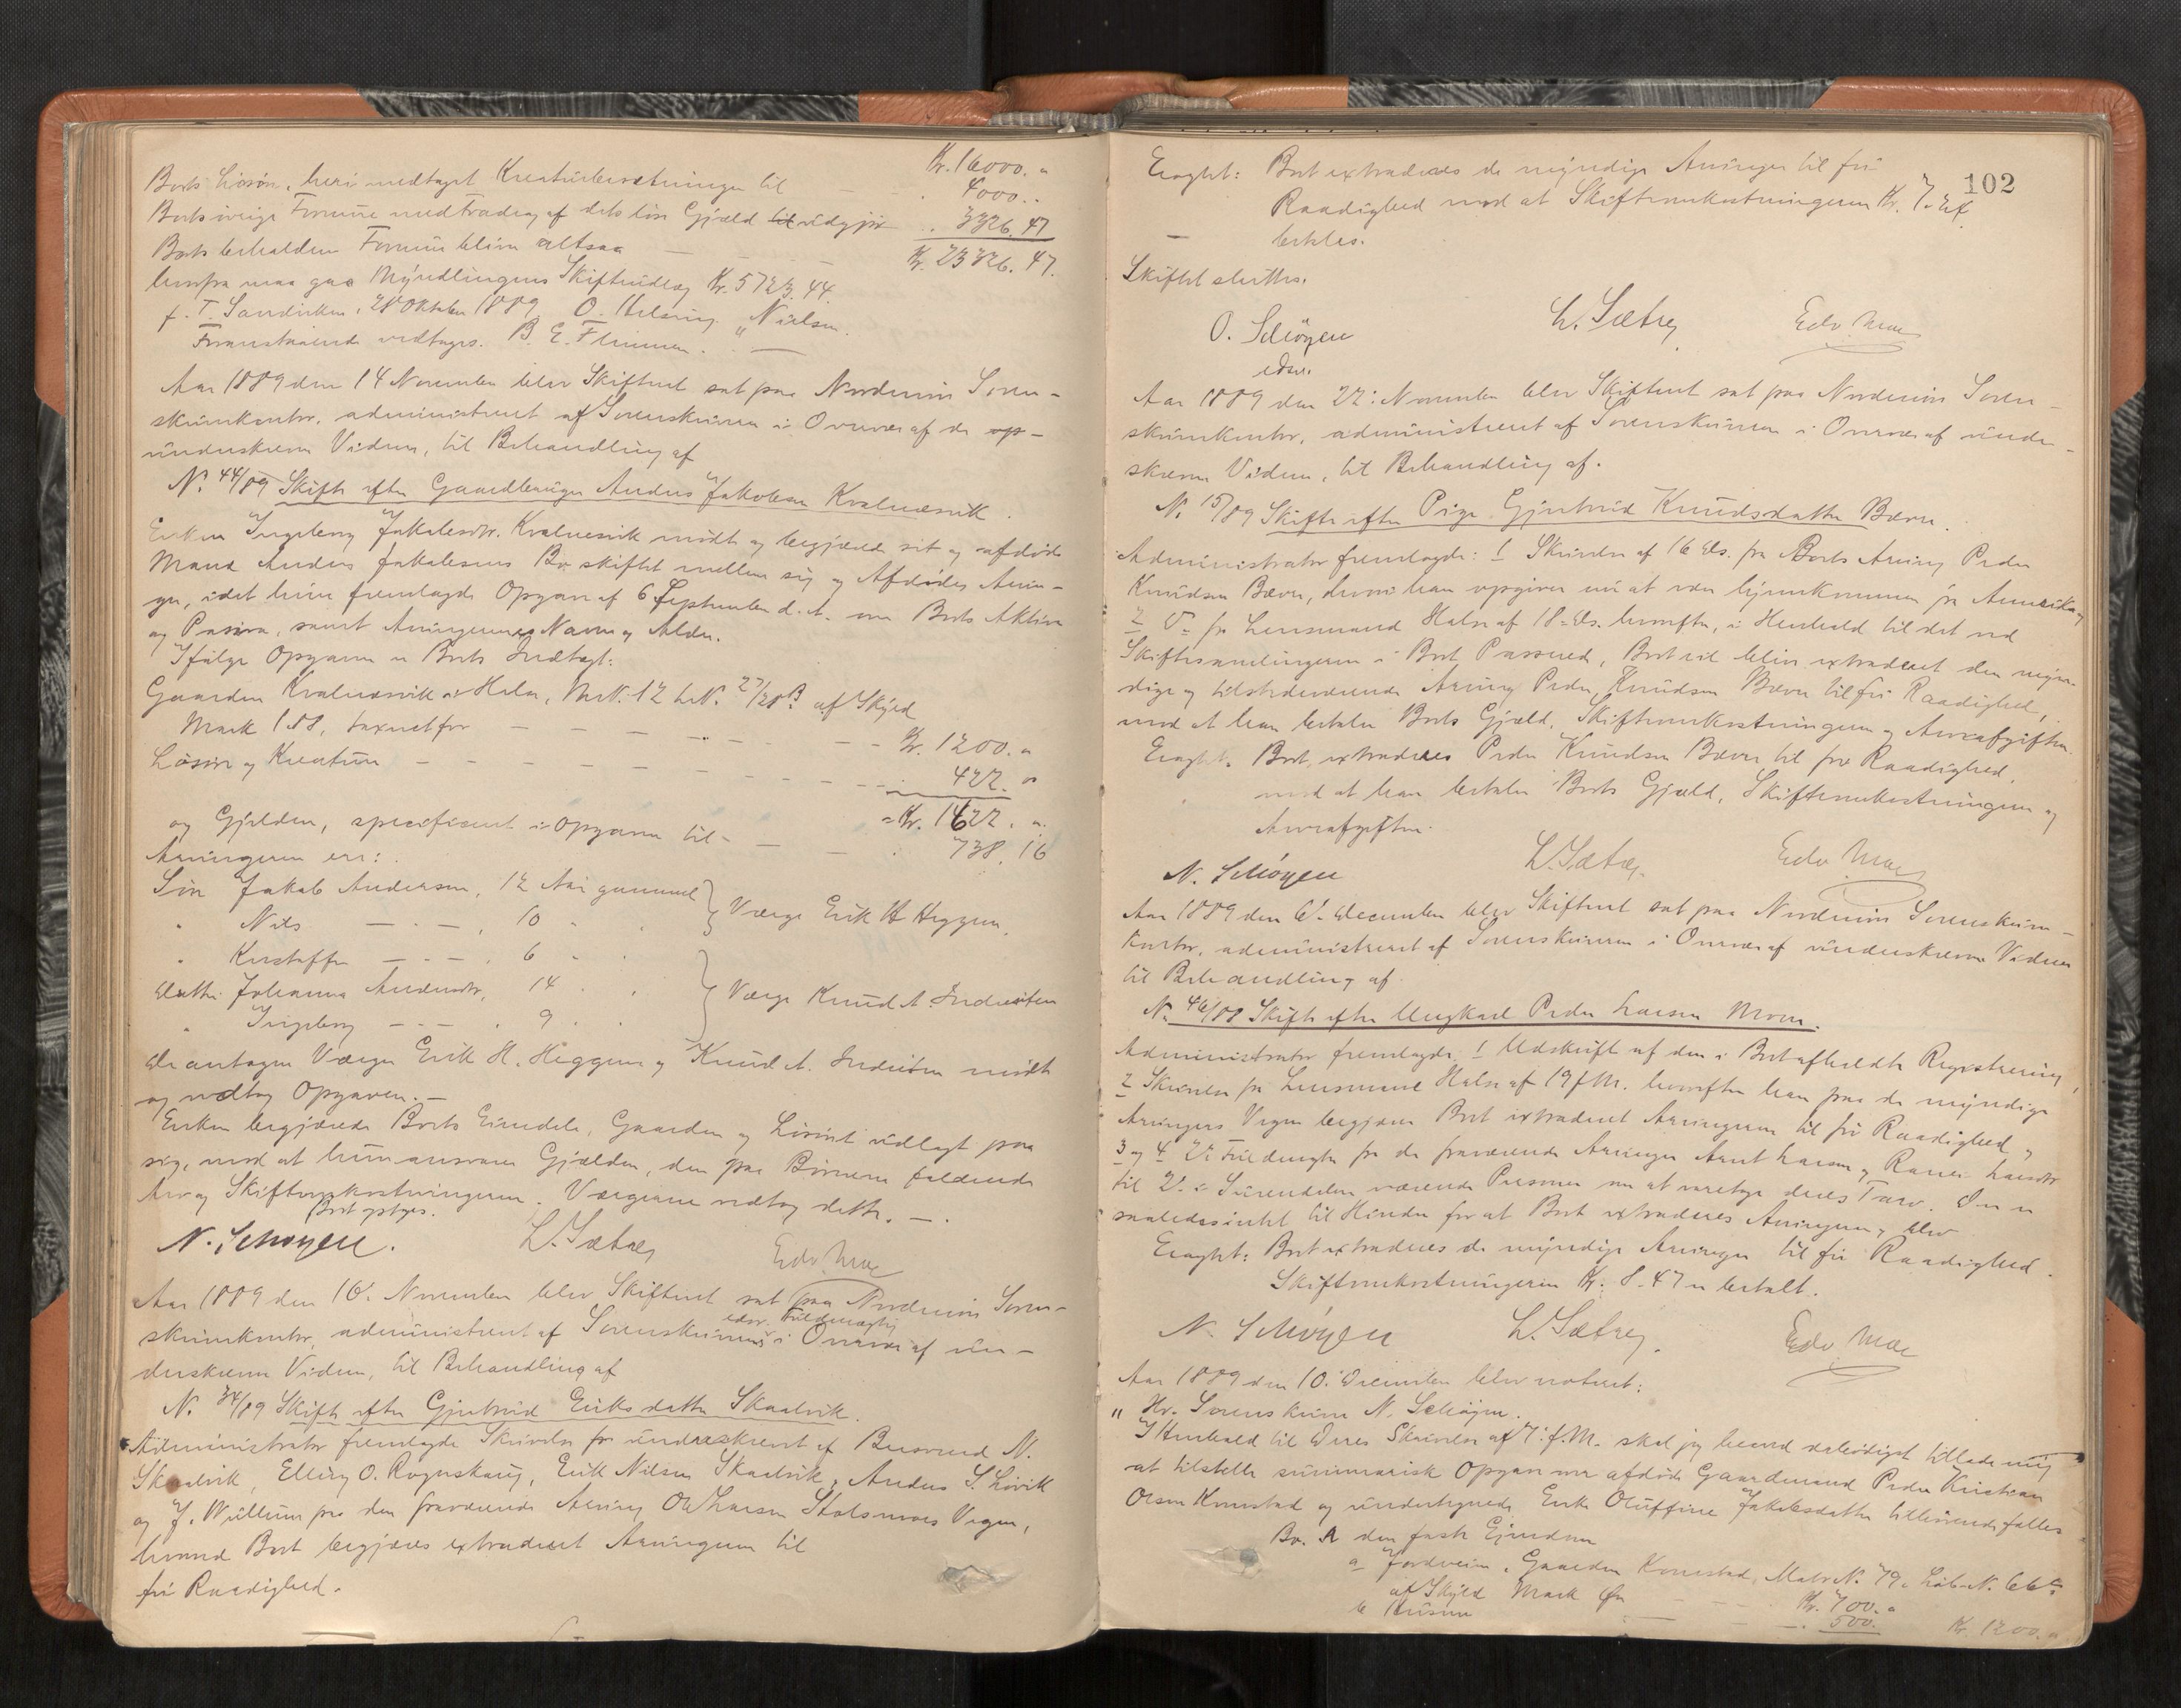 Kr. 16000. "
Boets Løsøre, heri medtaget Kreaturbesætningen til — — . 4000. .
Boets øvrige Formue med fradrag af dets løse Gjæld til udgjør . 3326. 47
Boets beholdne Formue bliver altsaa — — — Kr. 23326. 47.
herfra maa gaa Myndlingens Skifteudlæg Kr. 5723. 44.
p. T. Sandviken, 28 Oktober 1889 O. Nielsen.
Foranstaaende vedtages. B. E. Flemmen. . —
Aar 1889 den 14 November blev Skifteret sat paa Nordmøre Soren-
skriverkontor, administreret af Sorenskriveren i Overvær af de op-
underskrevne Vidner, til Behandling af
N. 44/89 Skifte efter Gaardbruger Anders Jakobsen Kvalnæsvik.
Enken Ingeborg Jakobsdtr. Kvalnesvik mødte og begjærede sit og afdøde
Mand Anders Jakobsens Bo skiftet mellem sig og Afdødes Arvin-
ger, idet hun fremlagde Opgave af 6 September d. A. over Boets Aktiva
og Passiva, samt Arvingernes Navne og Alder.
Ifølge Opgaven er Boets Indtægt:
Gaarden Kvalnæsvik i Halse, Mr.N. 12 L.N. 27/28 B. af Skyld
Mark 1.88, taxeret for — — — — — Kr. 1200. "
Løsøre og Kreaturer — — — — — — 422. "
Kr. 1622. "
og Gjælden, specificeret i Opgaven til — — — . 738. 16
Arvingerne ere:
Søn Jakob Andersen, 12 Aar gammel } Værge Erik H Heggem.
" Nils — " — , 10 " "
" Kristoffer — " — , 6 " "
Datter Johanna Andersdtr, 14 " " } Værge Knud A. Indreiten
" Ingeborg — " — , 9 " "
De antagne Værger Erik H. Heggem og Knud A. Indreiten mødte
og vedtog Opgaven. —
Enken begjærede Boets Eiendele, Gaarden og Løsøret udlagt paa
sig, mod at hun ansvarer Gjælden, den paa Børnene faldende
Arv og Skifteomkostningerne. Værgerne vedtog dette. —
Boet optages.
N. Schøyen. L. Sætrey Edv. Moe
Aar 1889 den 16. November blev Skifteret sat paa Nordmøre Soren-
skriverkontor, administreret af Sorenskriverens edsv. Fuldmægtig i Overvær af un-
derskrevne Vidner, til Behandling af
N. 34/89 Skifte efter Gjertrud Eriksdatter Skaalvik.
Administrator fremlagde Skrivelse fr underskrevet af N.
Skaalvik, Elling O. Rognskaug, Erik Nilsen Skaalvik, Anders S. Løvik
og J. Wullum paa den fraværende Arving Ole Larsen Stolsmoes Vegne,
hvorved Boet begjæres extraderet Arvingerne til
fri Raadighed.
102
Eragtet: Boet extraderes de myndige Arvinger til fri
Raadighed mod at Skifteomkostningerne Kr. 7.
betales.
Skiftet sluttes.
O. Schöyen L. Sætrey Edv. Moe
edsv.
Aar 1889 den 22. November blev Skifteret sat paa Nordmøre Soren-
skriverkontor, administreret af Sorenskriveren i Overvær af under-
skrevne Vidner, til Behandling af.
N. 15/89 Skifte efter Pige Gjertrud Knudsdatter Bæver.
Administrator fremlagde: 1 Skrivelse af 16 ds. fra Boets Arving Peder
Knudsen Bæver, hvori han opgiver nu at være hjemkommen fra Amerika, og
2 Do fra Lensmand Halse af 18. ds. hvorefter, i Henhold til det ved
Skiftesamlingerne i Boet Passerede, Boet vil blive extraderet den myn-
dige og tilstedeværende Arving Peder Knudsen Bæver til fri Raadighed,
mod at han betaler Boets Gjæld, Skifteomkostningerne og Arveafgiften.
Eragtet: Boet extraderes Peder Knudsen Bæver til fri Raadighed,
mod at han betaler Boets Gjæld, Skifteomkostningerne og
Arveafgiften.
N. Schöyen L. Sætrey. Edv. Moe
Aar 1889 den 6. December blev Skifteret sat paa Nordmøre Sorenskriver-
kontor, administreret af Sorenskriveren i Overvær af underskrevne Vidner
til Behandling af
N. 46/88 Skifte efter Ungkarl Peder Larsen Moen.
Administrator fremlagde 1 Udskrift af den i Boet afholdte Registrering,
2 Skrivelse fra Lensmand Halse af 19 f. M. hvorefter han paa de myndige
Arvingers Vegne begjærer Boet extraderet Arvingerne til fri Raadighed,
3 og 4 2de Fuldmagter fra de fraværende Arvinger Arnt Larsen og Larsdtr
til 2. i Surendalen værende Personer om at varetage deres Tarv. Der er
saaledes intet til Hinder for at Boet extraderes Arvingerne, blev
Eragtet: Boet extraderes de myndige Arvinger til fri Raadighed.
Skifteomkostningerne Kr. 8. 47 er betalt.
N. Schöyen L. Sætrey. Edv. Moe
Aar 1889 den 10. December blev noteret:
" Hr. Sorenskriver N. Schøyen.
I Henhold til Deres Skrivelse af 7. f. M. skal jeg herved ærbødigst tillade mig
at tilstille summarisk Opgave over afdøde Gaardmand Peder Kristian
Olsen Kornstad og undertegnede Enke Oluffine Jakobsdatter tilhørende fælles
Bo. A den faste Eiendom
a Jordveien, Gaarden Kornstad, Matr.N. 79, Løb.N. 66
af Skyld Mark Øre — — Kr. 700. "
b Husene — — — . 500. Kr. 1200. "